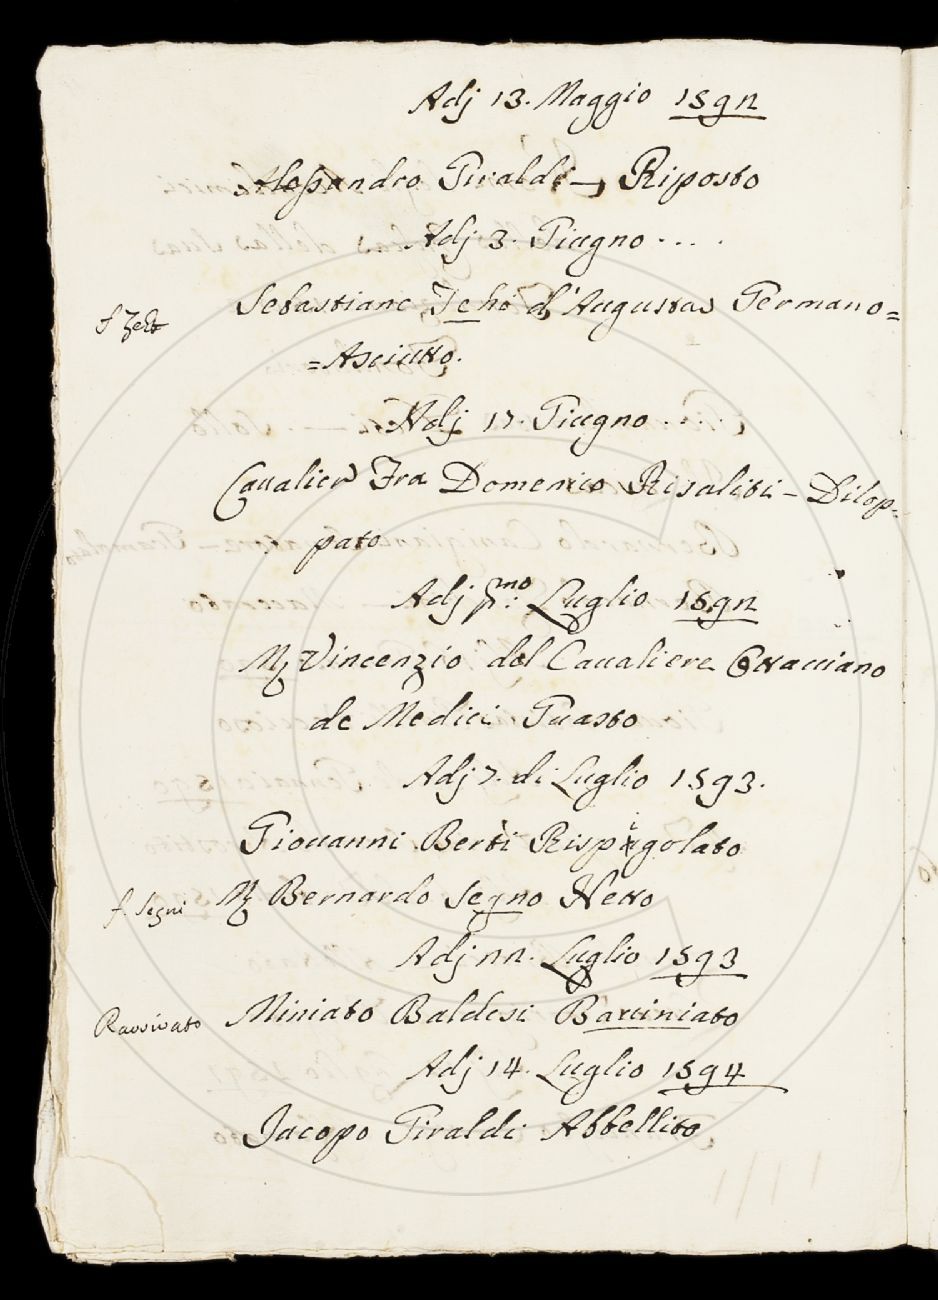 Adj 13. Maggio 1592
Alessandro Giraldi — Riposto
Adj 3. Giugno ....
f Zect
Sebastiano Zehò d'Augusta Germano=
=Asciutto.
Adj 17. Giugno ..
Cavalier Fra Domenico Risaliti — Dilop=
pato
Adj p.mo Luglio 1592
M. Vincenzio del Cavaliere Ottaviano
de Medici Guasto
Adj 7. di Luglio 1593.
Giovanni Berti Rispigolato
f. Segni
M. Bernardo Segno Netto
Adj 22. Luglio 1593
Ravvivato
Miniato Baldesi Barciniato
Adj 14. Luglio 1594
Jacopo Giraldi Abbellito